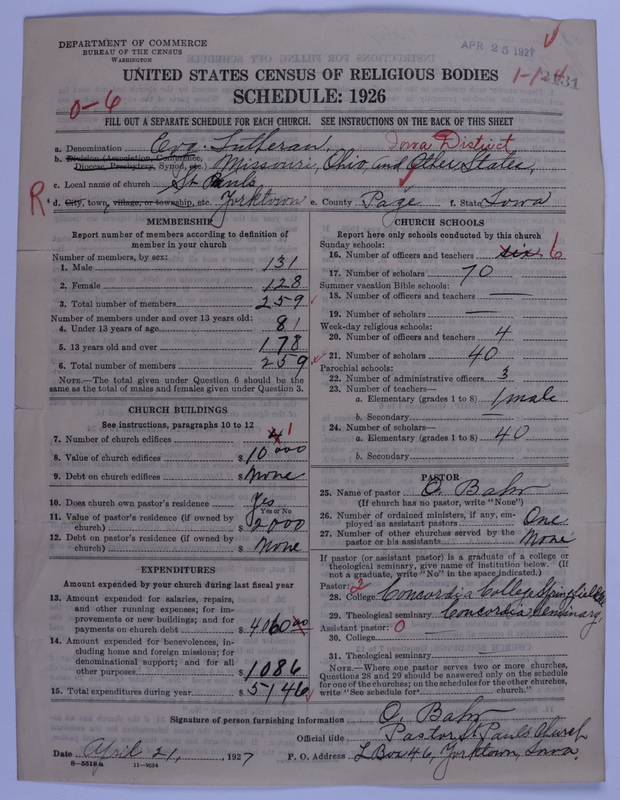 DEPARTMENT OF COMMERCE
BUREAU OF THE CENSUS
WASHINGTON
APR 25 1927
UNITED STATES CENSUS OF RELIGIOUS BODIES
1-1
SCHEDULE: 1926
0-6
FILL OUT A SEPARATE SCHEDULE FOR EACH CHURCH. SEE INSTRUCTIONS ON THE BACK OF THIS SHEET
a. Denomination Evg. Lutheran, Iowa District
b. Division (Association, Conference,
Diocese, Presbytery, Synod, etc.) Missouri, Ohio, and Other States,
c. Local name of church St Pauls
R
d. City, town, village, or township, etc. Yorktown e. County Page f. State Iowa
MEMBERSHIP
Report number of members according to definition of
member in your church
Number of members, by sex:
1. Male 131
2. Female 128
3. Total number of members 259
Number of members under and over 13 years old:
4. Under 13 years of age 81
5. 13 years old and over 178
6. Total number of members 259
NOTE.—The total given under Question 6 should be the
same as the total of males and females given under Question 3.
CHURCH BUILDINGS
See instructions, paragraphs 10 to 12
7. Number of church edifices 1
8. Value of church edifices $ 10000
9. Debt on church edifices $ None
10. Does church own pastor's residence Yes
Yes or No
11. Value of pastor's residence (if owned by
church) $ 2000
12. Debt on pastor's residence (if owned by
church) $ None
EXPENDITURES
Amount expended by your church during last fiscal year
13. Amount expended for salaries, repairs,
and other running expenses; for im-
provements or new buildings; and for
payments on church debt $ 4060 00
14. Amount expended for benevolences, in-
cluding home and foreign missions; for
denominational support; and for all
other purposes $ 1086
15. Total expenditures during year $ 5146
CHURCH SCHOOLS
Report here only schools conducted by this church
Sunday schools:
16. Number of officers and teachers six 6
17. Number of scholars 70
Summer vacation Bible schools:
18. Number of officers and teachers —
19. Number of scholars —
Week-day religious schools:
20. Number of officers and teachers 4
21. Number of scholars 40
Parochial schools:
22. Number of administrative officers 3
23. Number of teachers—
a. Elementary (grades 1 to 8) 1 male
b. Secondary —
24. Number of scholars—
a. Elementary (grades 1 to 8) 40
b. Secondary
PASTOR
25. Name of pastor O. Bahr
(If church has no pastor, write "None")
26. Number of ordained ministers, if any, em-
ployed as assistant pastors One
27. Number of other churches served by the
pastor or his assistants None
If pastor (or assistant pastor) is a graduate of a college or
theological seminary, give name of institution below. (If
not a graduate, write "No" in the space indicated.)
Pastor: 2
28. College Concordia College Springfield
29. Theological seminary Concordia Seminary
Assistant pastor: 0
30. College —
31. Theological seminary —
NOTE.—Where one pastor serves two or more churches,
Questions 28 and 29 should be answered only on the schedule
for one of the churches; on the schedules for the other churches,
write "See schedule for church."
Signature of person furnishing information O. Bahr
Official title Pastor St Pauls Church
Date April 21, 1927 P. O. Address L Box 46, Yorktown, Iowa.
8-5518a 11-9034